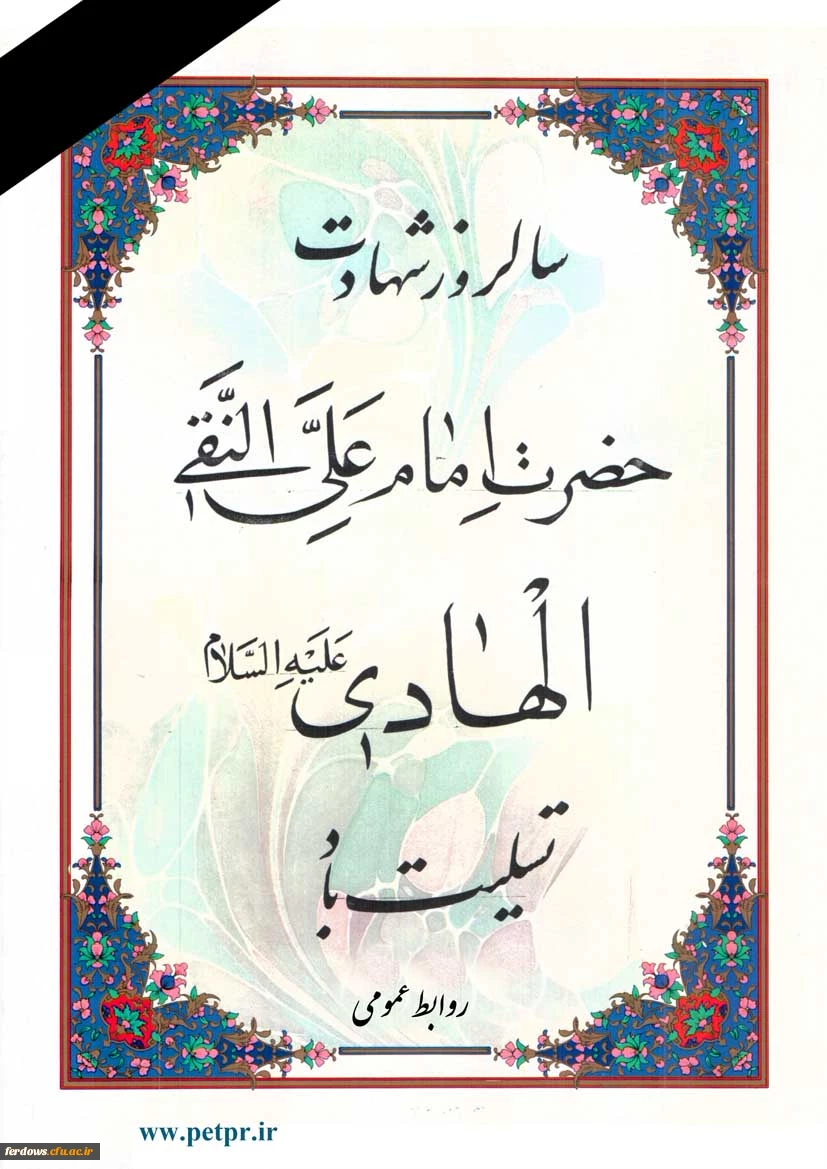 سالروز شهادت
حضرتِ اِمام عَلیِّ النَّقی
الْهادی عَلَیْهِ السَّلام
تسلیت باد
روابط عمومی
ww.petpr.ir
ferdows.cfu.ac.ir